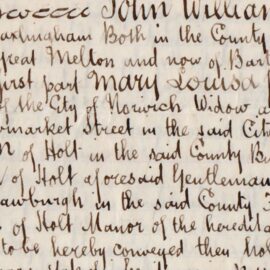 John William
Both in the County
Great Melton and now of Bar
first part Mary Louisa
of the City of Norwich Widow
market Street in the said Cit
of Holt in the said County Ba
of Holt aforesaid Gentleman
awburgh in the said County
of Holt Manor of the heredita
to be hereby conveyed they ho